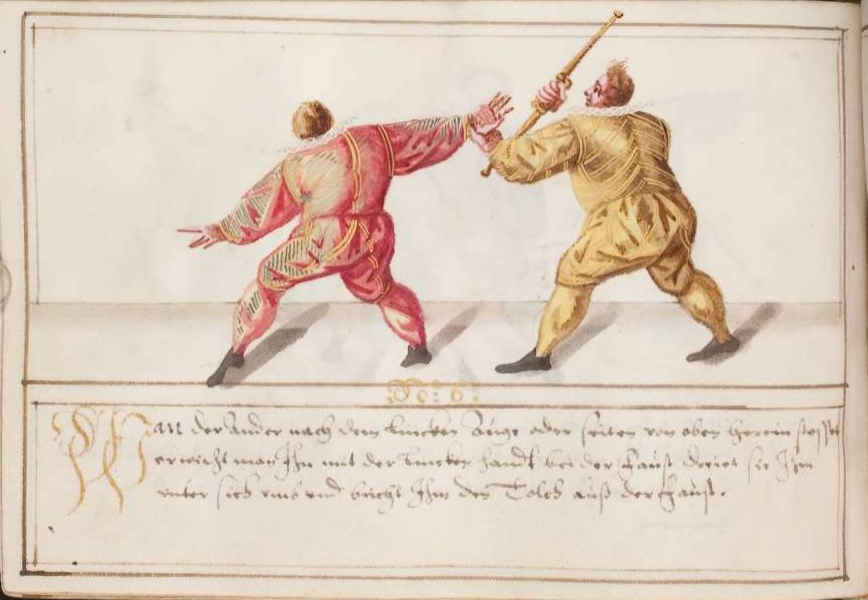 No: 6.
Wan der Ander nach dem lincken Auge oder seiten von oben herein stosset
erwischt man Ihn mit der lincken handt bei der Faust drehet sie Ihm
unter sich umb und bricht Ihm den Tolch auß der Faust.